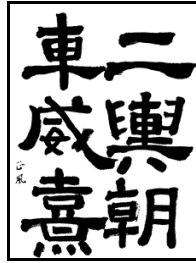 二輿朝
車威熹
正風